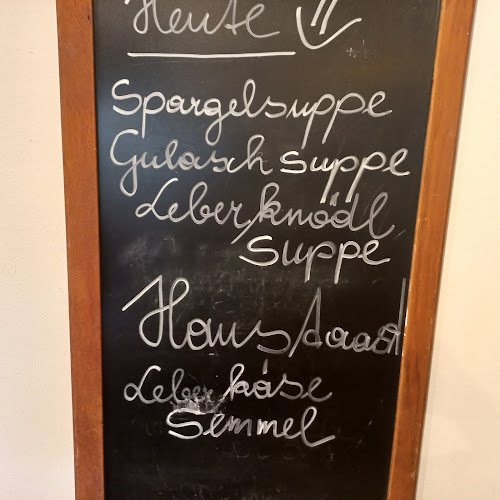 Heute
Spargelsuppe
Gulasch suppe
Leberknödl
suppe
Haus
Leberkäse
Semmel